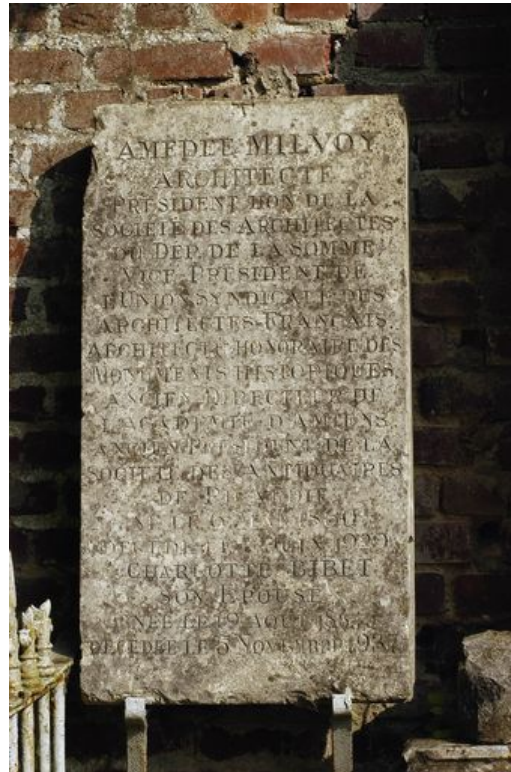 AMÉDÉE MILVOY
ARCHITECTE
PRÉSIDENT HON. DE LA
SOCIÉTÉ DES ARCHITECTES
DU DÉP. DE LA SOMME
VICE PRÉSIDENT DE
L'UNION SYNDICALE DES
ARCHITECTES FRANÇAIS.
ARCHITECTE HONORAIRE DES
MONUMENTS HISTORIQUES
ANCIEN DIRECTEUR DE
L'ACADÉMIE D'AMIENS
ANCIEN PRÉSIDENT DE LA
SOCIÉTÉ DES ANTIQUAIRES
DE PICARDIE
NÉ LE
DÉCÉDÉ LE JUIN 1929
CHARLOTTE LIBET
SON ÉPOUSE
NÉE LE 19 AOUT
DÉCÉDÉE LE 5 NOVEMBRE 1937